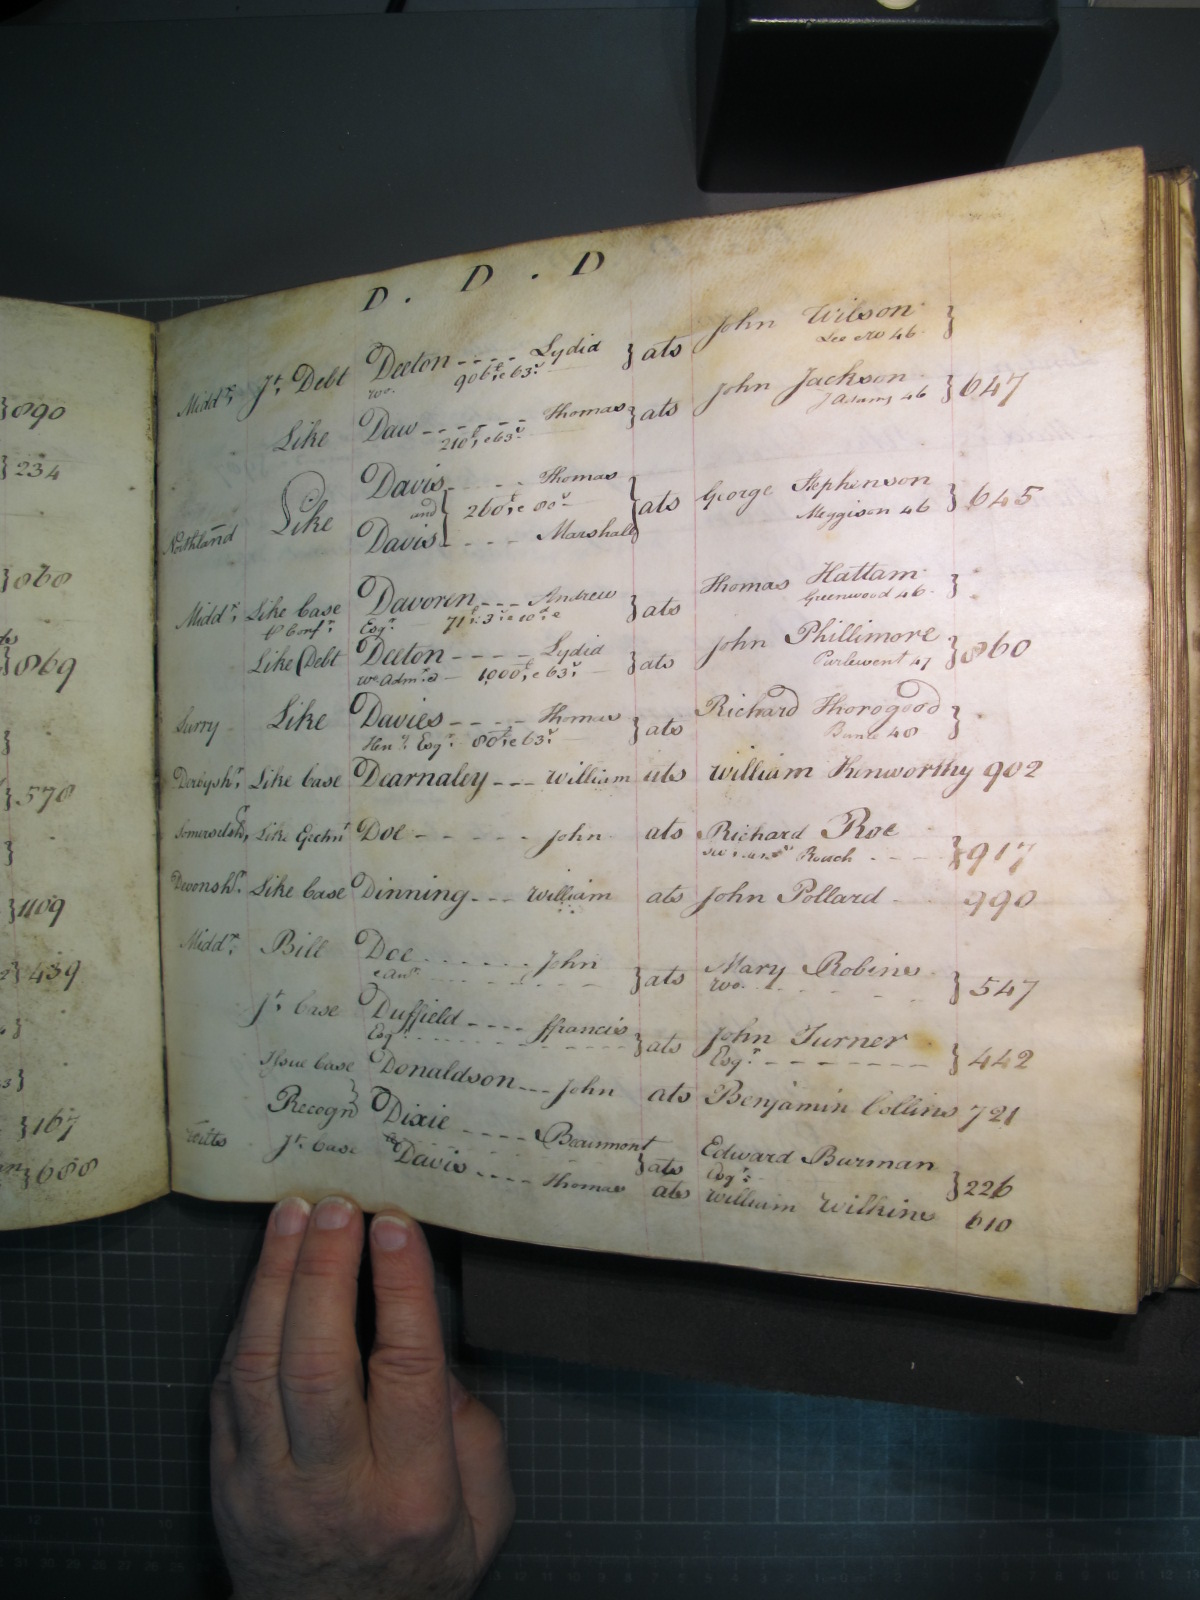 D. D. D
Midd.x Jt. Debt Deeton ---- Lydia } ats John Wilson }
wo. 906£, e 63s Lee 46
Like Daw ------ Thomas } ats John Jackson } 647
210£, e 63s J Adams 46
Davis ---- Thomas
Northland Like and 260£, e 80s } ats George Stephenson } 645
Davis ---- Marshall Meggison 46
Midd.x Like Case Davoren --- Andrew } ats Thomas Hattam }
& Conf.n Esq.r 71£: 3s: e 10d, e Greenwood 46
Like Debt Deeton ---- Lydia } ats John Phillimore } 860
wo. Adm.x 1000£, e 63s Curlewent 47
Surry Like Davies ---- Thomas } ats Richard Thorogood }
Hen.y Esq.r 80£, e 63s 48
Derbysh.r Like Case Dearnaley --- William ats William Kenworthy 902
Somersetsh.r Like Doe ----- John ats Richard Roe
Rouch ---- } 917
Devonsh.r Like Case Dinning --- William ats John Pollard 990
Midd.x Bill Doe ------ John } ats Mary Robins } 547
e an.r wo.
Jt. Case Duffield ---- ffrancis } ats John Turner } 442
Esq.r Esq.r
Issue Case Donaldson --- John ats Benjamin Collins 721
Recogn Dixie ---- Beaumont } ats Edward Burman } 226
Esq.r
Wilts Jt. Case Davis ---- Thomas ats William Wilkins 610
}890
}234
}868
}869
}
}578
}
}1109
}439
}
}
}167
}688